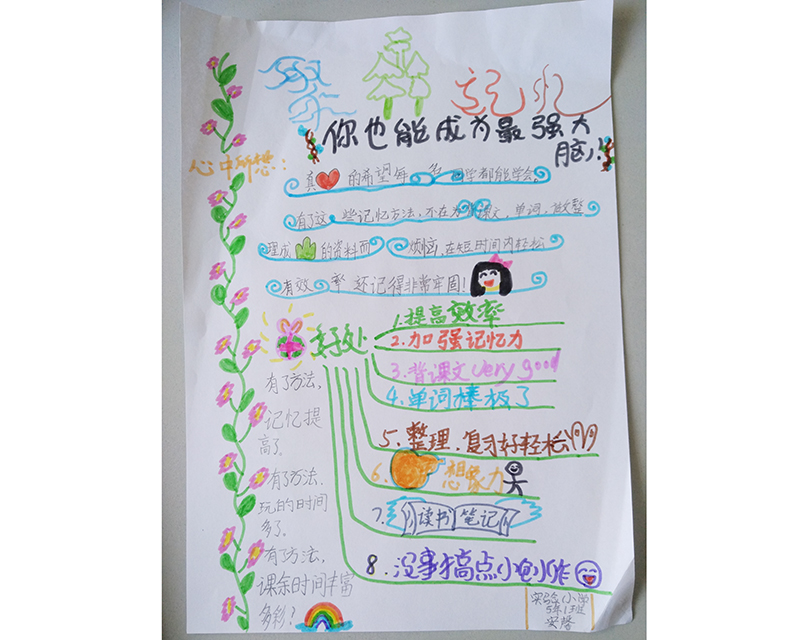 记忆
你也能成为最强大
脑!
心中所想:
真的希望每一名同学都能学会。
有了这些记忆方法,不在为背课文,单词,做整
理成的资料而烦恼,在短时间内轻松
有效率还记得非常牢固!
好处
1.提高效率
2.加强记忆力
3.背课文very good
4.单词棒极了
5.整理.复习好轻松
6.想象力
7.读书笔记
8.没事搞点小创作
有了方法,
记忆提
高了。
有了方法,
玩的时间
多了。
有了方法,
课余时间丰富
多彩?
实验小学
5年1班